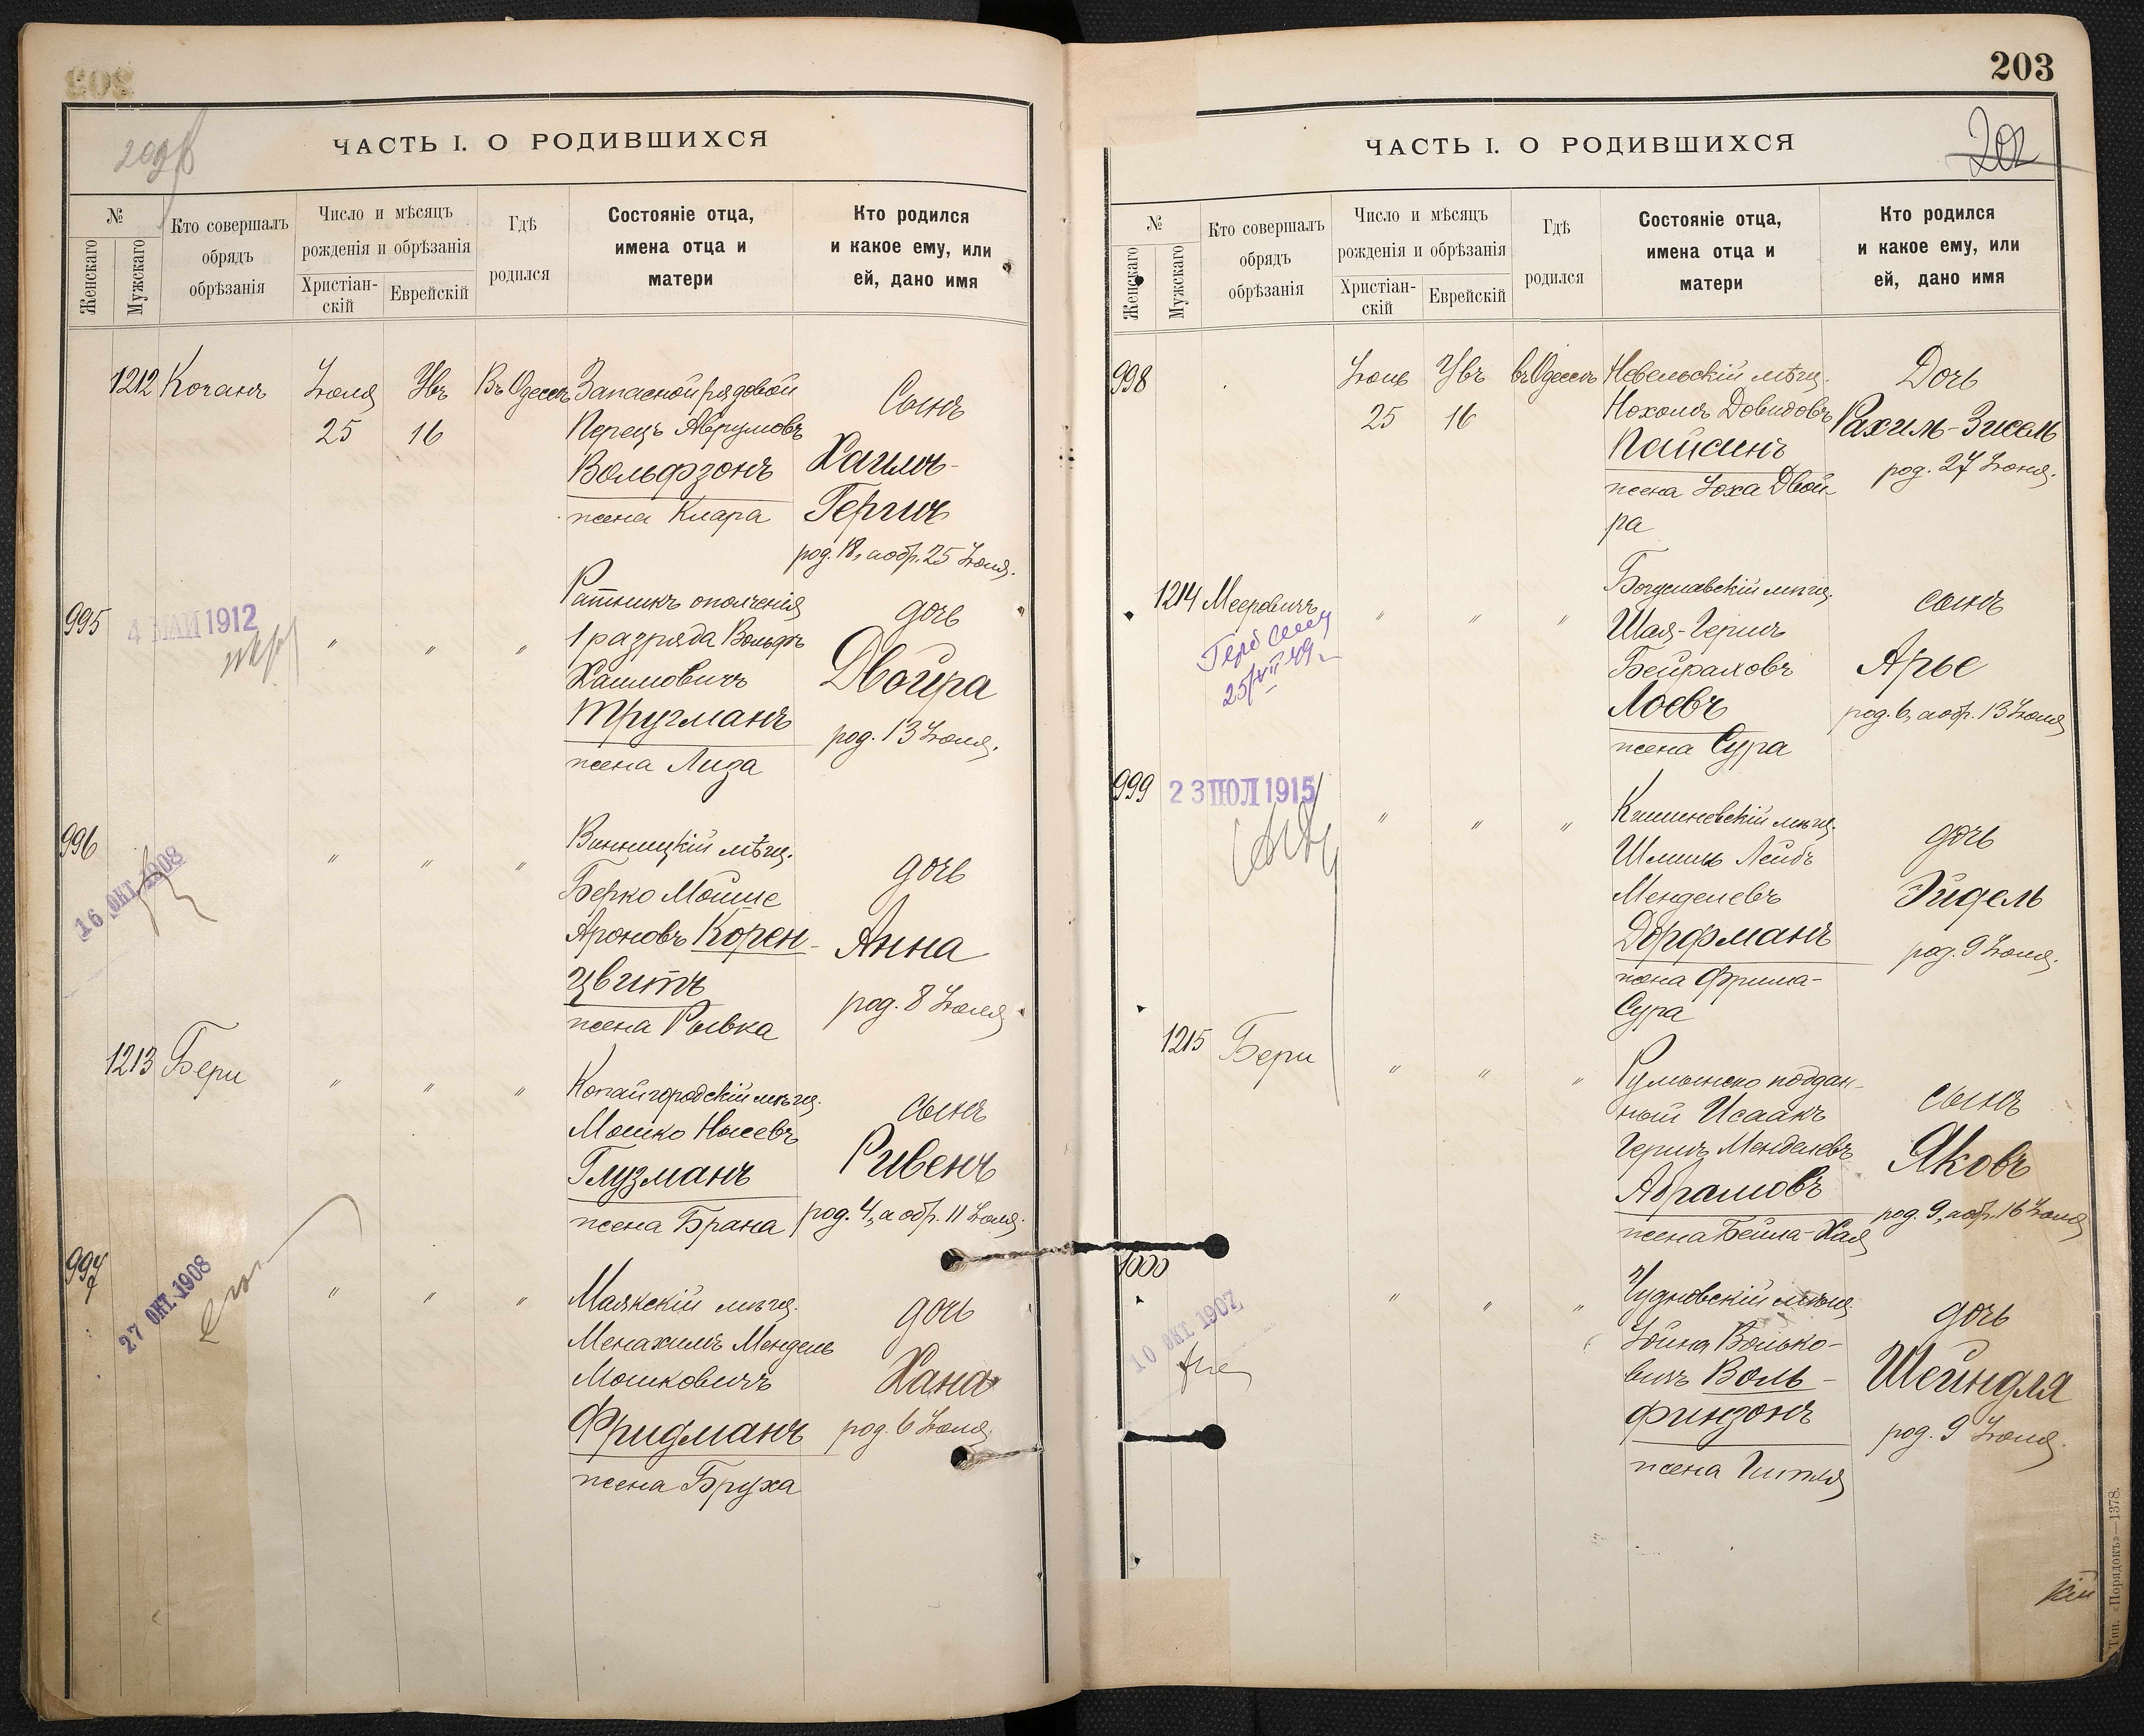 ЧАСТЬ I. О РОДИВШИХСЯ
№
Женскаго
Мужскаго
Кто совершалъ
обрядъ
обрѣзанія
Число и мѣсяцъ
рожденія и обрѣзанія
Христіан-
скій
Еврейскій
Гдѣ
родился
Состояніе отца,
имена отца и
матери
Кто родился
и какое ему, или
ей, дано имя
1212 Коганъ
Іюля
25
16
Въ Одессѣ
Запасной рядовой
Перецъ Абрумовъ
Вольфзонъ
жена Клара
Сынъ
Хаимъ-
Гершъ
род. 18, а обр. 25 Іюля.
995
4 МАЙ 1912
" " "
Ратникъ ополченія
1 разряда Вольфъ
Хаимовичъ
Тругманъ
жена Лиза
дочь
Двойра
род. 13 Іюля.
996
16 ОКТ. 1908
" " "
Винницкій мѣщ.
Берко Мойше
Ароновъ Корен-
цвитъ
жена Рывка
дочь
Анна
род. 8 Іюля
1213 Бери
" " "
Копайгородскій мѣщ.
Мошко Нысевъ
Глузманъ
жена Брана
сынъ
Ривенъ
род. 4, а обр. 11 Іюля.
997
27 ОКТ. 1908
" " "
Маякскій мѣщ.
Менахимъ Мендель
Мошковичъ
Фридманъ
жена Бруха
дочь
Хана
род. 6 Іюля.
203
202
ЧАСТЬ I. О РОДИВШИХСЯ
№
Женскаго
Мужскаго
Кто совершалъ
обрядъ
обрѣзанія
Число и мѣсяцъ
рожденія и обрѣзанія
Христіан-
скій
Еврейскій
Гдѣ
родился
Состояніе отца,
имена отца и
матери
Кто родился
и какое ему, или
ей, дано имя
998
25
16
въ Одессѣ
Невельскій мѣщ.
Нохомъ Довидовъ
Пайкинъ
жена Іоха Двой-
ра
Дочь
Рахиль-Зисель
род. 27 Іюня.
1214 Мееровичъ
" " "
Богуславскій мѣщ.
Шая-Гершъ
Бейраховъ
Лоевъ
жена Сура
сынъ
Арье
род. 6, а обр. 13 Іюля
999
23 ІЮЛ 1915
" " "
Кишиневскій мѣщ.
Шлима Лейбъ
Менделевъ
Дорфманъ
жена Фрима-
Сура
дочь
Эйдель
род. 9 Іюля.
1215 Бери
" " "
Румынско поддан-
ный Исаакъ
Гершъ Менделевъ
Абрамовъ
жена Бейла-Хая
сынъ
Яковъ
род. 9, а обр. 16 Іюля
1000
10 ОКТ 1907
" " "
Чудновскій мѣщ.
Іойна Волько-
вичъ Воль-
финзонъ
жена Гитля
дочь
Шейндля
род. 9 Іюля.
Тип. «Порядокъ»—1378.